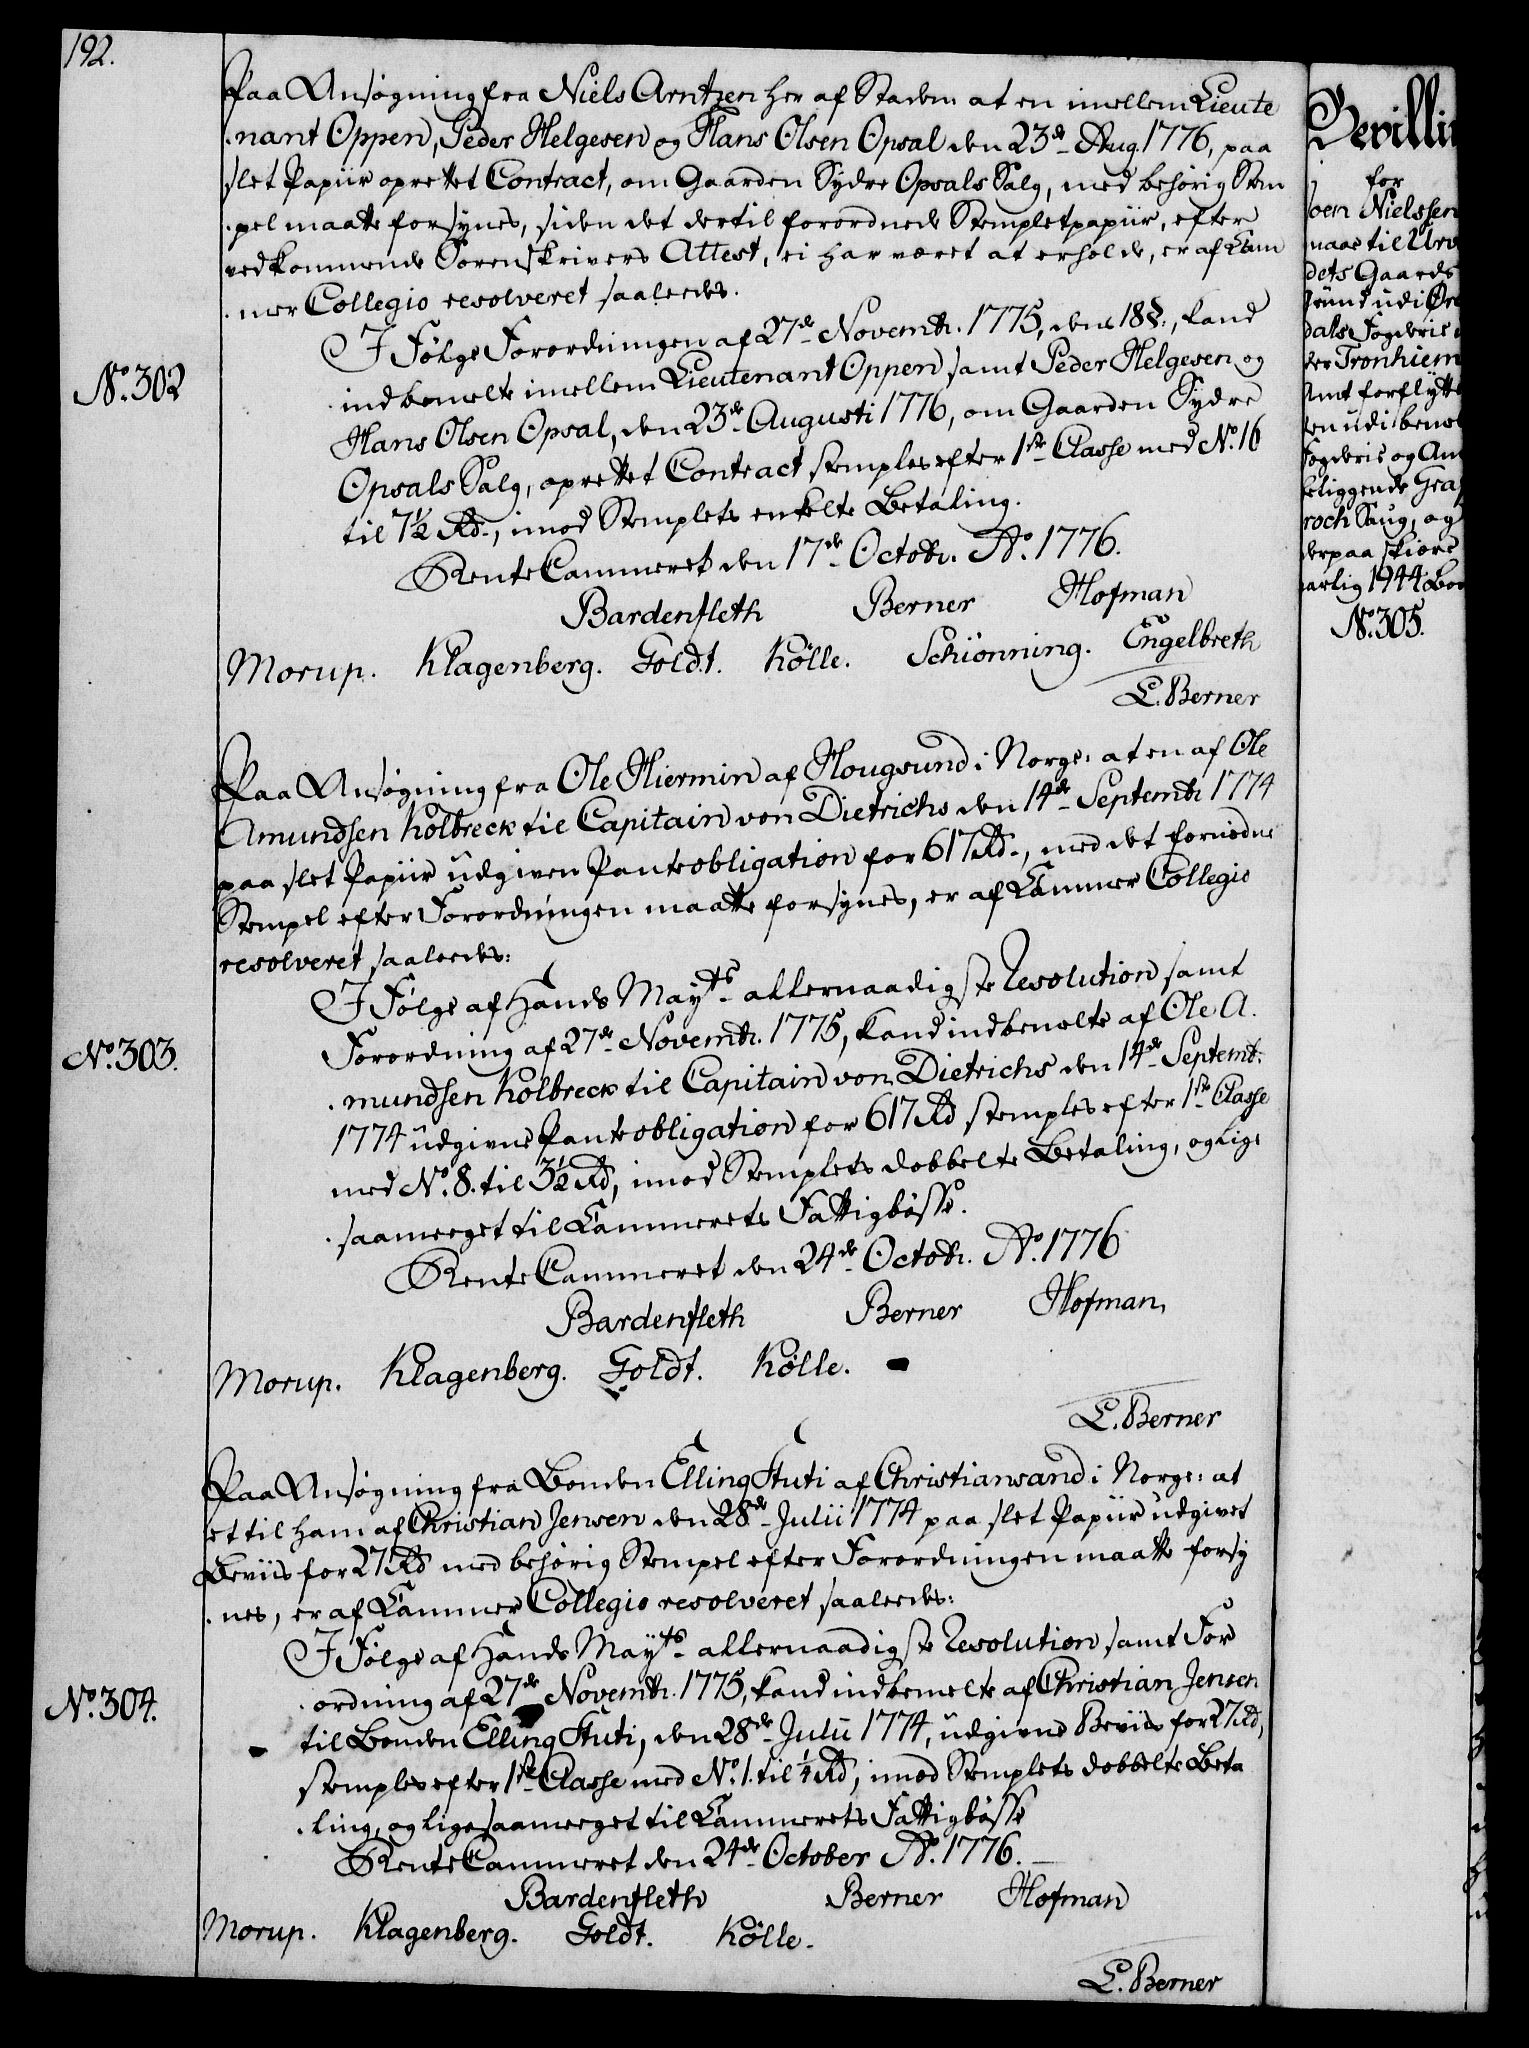 192.
Paa Ansøgning fra Niels Arntzen her af Staden at en imellem Lieute
nant Oppen, Peder Helgesen og Hans Olsen Opsal den 23de Aug. 1776, paa
slet Papiir oprettet Contract, om Gaarden Sydre Opsals Salg, med behørig Stem
pel maatte forsynes, siden det dertil forordnede Stempletpapiir, efter
vedkommende Sorenskrivers Attest, ei har været at erholde, er af Cam
mer Collegio resolveret saaledes.
No. 302
I Følge Forordningen af 27de Novembr. 1775, dens 18 §., kand
indbemelte imellem Lieutenant Oppen samt Peder Helgesen og
Hans Olsen Opsal, den 23de Augusti 1776, om Gaarden Sydre
Opsals Salg, oprettet Contract stemples efter 1ste Classe med No. 16
til 7½ Rd., imod Stemplets enkelte Betaling.
RenteCammeret den 17de Octobr. Ao. 1776.
Bardenfleth Berner Hofman
Morup. Klagenberg. Goldt. Kölle. Schiönning. Engelbreth
L. Berner
Paa Ansøgning fra Ole Hiermin af Hougsund i Norge: at en af Ole
Amundsen Kolbreck til Capitain von Dietrichs den 14de Septembr 1774
paa slet Papiir udgiven Panteobligation for 617 Rd., med det fornødne
Stempel efter Forordningen maatte forsynes, er af Cammer Collegio
resolveret saaledes:
No. 303.
I Følge af Hands Mayts. allernaadigste Resolution samt
Forordning af 27de Novembr. 1775, kand indbemelte af Ole A.
mundsen Kolbreck til Capitain von Dietrichs den 14de Septembr.
1774 udgivne Panteobligation for 617 Rd stemples efter 1ste Classe
med No. 8. til 3½ Rd, imod Stemplets dobbelte Betaling, og lige
saameget til Cammerets Fattigbøsse.
RenteCammeret den 24de Octobr. Ao. 1776
Bardenfleth Berner Hofman,
Morup. Klagenberg. Goldt. Kölle.
L. Berner
Paa Ansøgning fra Bonden Elling Stuti af Christiansand i Norge: at
et til ham af Christian Jensen den 28de Julii 1774 paa slet Papiir udgivet
Beviis for 27 Rd med behørig Stempel efter Forordningen maatte forsy
nes, er af Cammer Collegio resolveret saaledes:
No. 304.
I Følge af Hands Mayts. allernaadigste Resolution samt For
ordning af 27de Novembr. 1775, kand indbemelte af Christian Jensen
til Bonden Elling Stuti, den 28de Julii 1774, udgivne Beviis for 27 Rd,
stemples efter 1ste Classe med No. 1. til ¼ Rd, imod Stemplets dobbelte Beta
ling, og lige saameget til Cammerets Fattigbøsse
RenteCammeret den 24de October Ao. 1776.
Bardenfleth Berner Hofman
Morup. Klagenberg. Goldt. Kölle.
L. Berner
Bevilli
for
oen Nielssen
naas til
dets Gaards
Grund udi
dals Fogderie
der Tronhiem
Amt forflytte
en udi
Fogderie og Am
beliggende
roch Saug, og
derpaa skiære
aarlig 1944
No. 305.